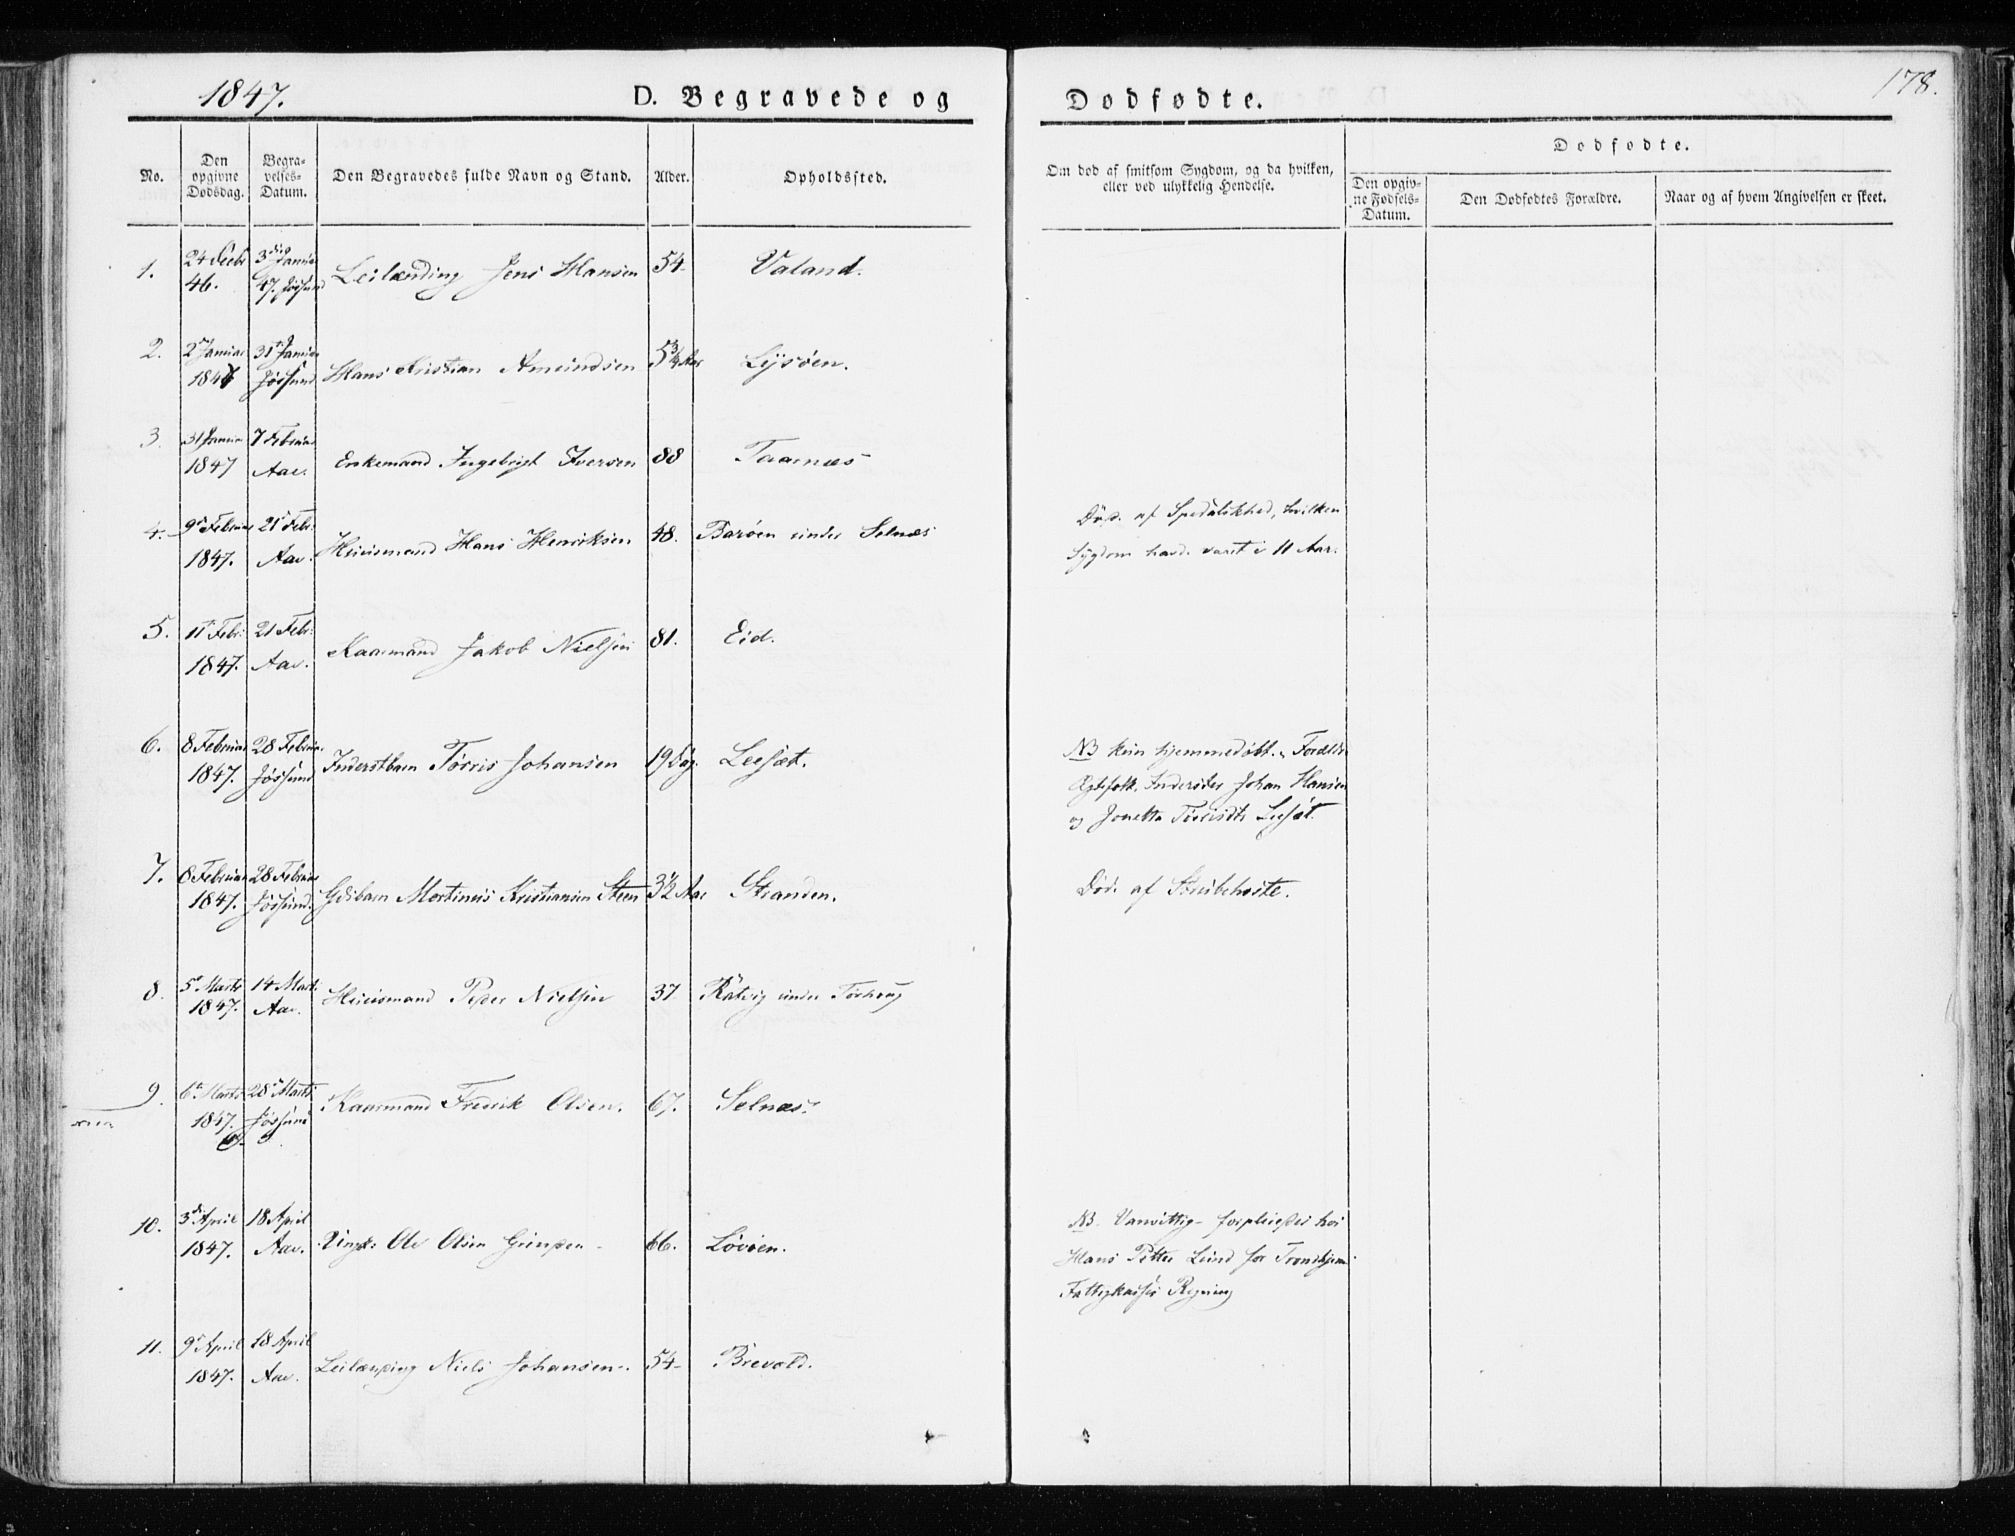 1847.
D. Begravede og
Dodfodte.
178.
No.
Den opgivne Dødsdag.
Begravelses-Datum.
Den Begravedes fulde Navn og Stand.
Alder.
Opholdssted.
Om død af smitsom Sygdom, og da hvilken, eller ved ulykkelig Hendelse.
Dodfodte.
Den opgivne Fødsels-Datum.
Den Dødfødtes Forældre.
Naar og af hvem Angivelsen er skeet.
1. 24 Decbr 3die Januar
46. 47. Jøssund Leilænding Jens Hansen 54 Valand.
2. 2den Januar 31te Januar
1847 Jøssund Hans Kristian Amundsen 5 3/4 Aar Lysøen.
3. 31 Januar 7 Februar
1847 Aae. Enkemand Ingebrigt Iversen 88 Taarnæs
4. 9de Februar 21de Febr:
1847. Aae. Huusmand Hans Henriksen 48. Barøen under Selnæs
Død af Spedalskhed, hvilken
Sygdom havde varet i 11 Aar.
5. 11te Febr: 21 Febr:
1847. Aae. Kaarmand Jakob Nielsen 81. Eid.
6. 8 Februar 28 Februar
1847. Jøssund Inderstbarn Tørris Johansen 19 Dag. Leesæt.
NB kun hjemmedøbt. Forældre
Ægtefolk Inderster Johan Hansen
og Jonetta Leesæt.
7. 8 Februar 28 Februar
1847. Jøssund. Gdbarn Martinus Kristiansen Steen 3 1/2 Aar Stranden.
Død af Strubehoste.
8. 5te Marts 14 Marts
1847. Aae. Huusmand Peder Nielsen 37 Ratvig under
9. 6te Marts 28de Marts
1847. Jøssund Kaarmand Fredrik Olsen. 67. Selnæs.
10. 3die April 18 April
1847. Aae. Ungk: Ole Olsen 66. Løvøen.
NB. Vanvittig forpleiedes hos
Hans Petter Lund for Trondhjems
Fattigkasses Regning
11. 9de April 18 April
1847. Aae. Leilænding Niels Johansen 54 Brevold.